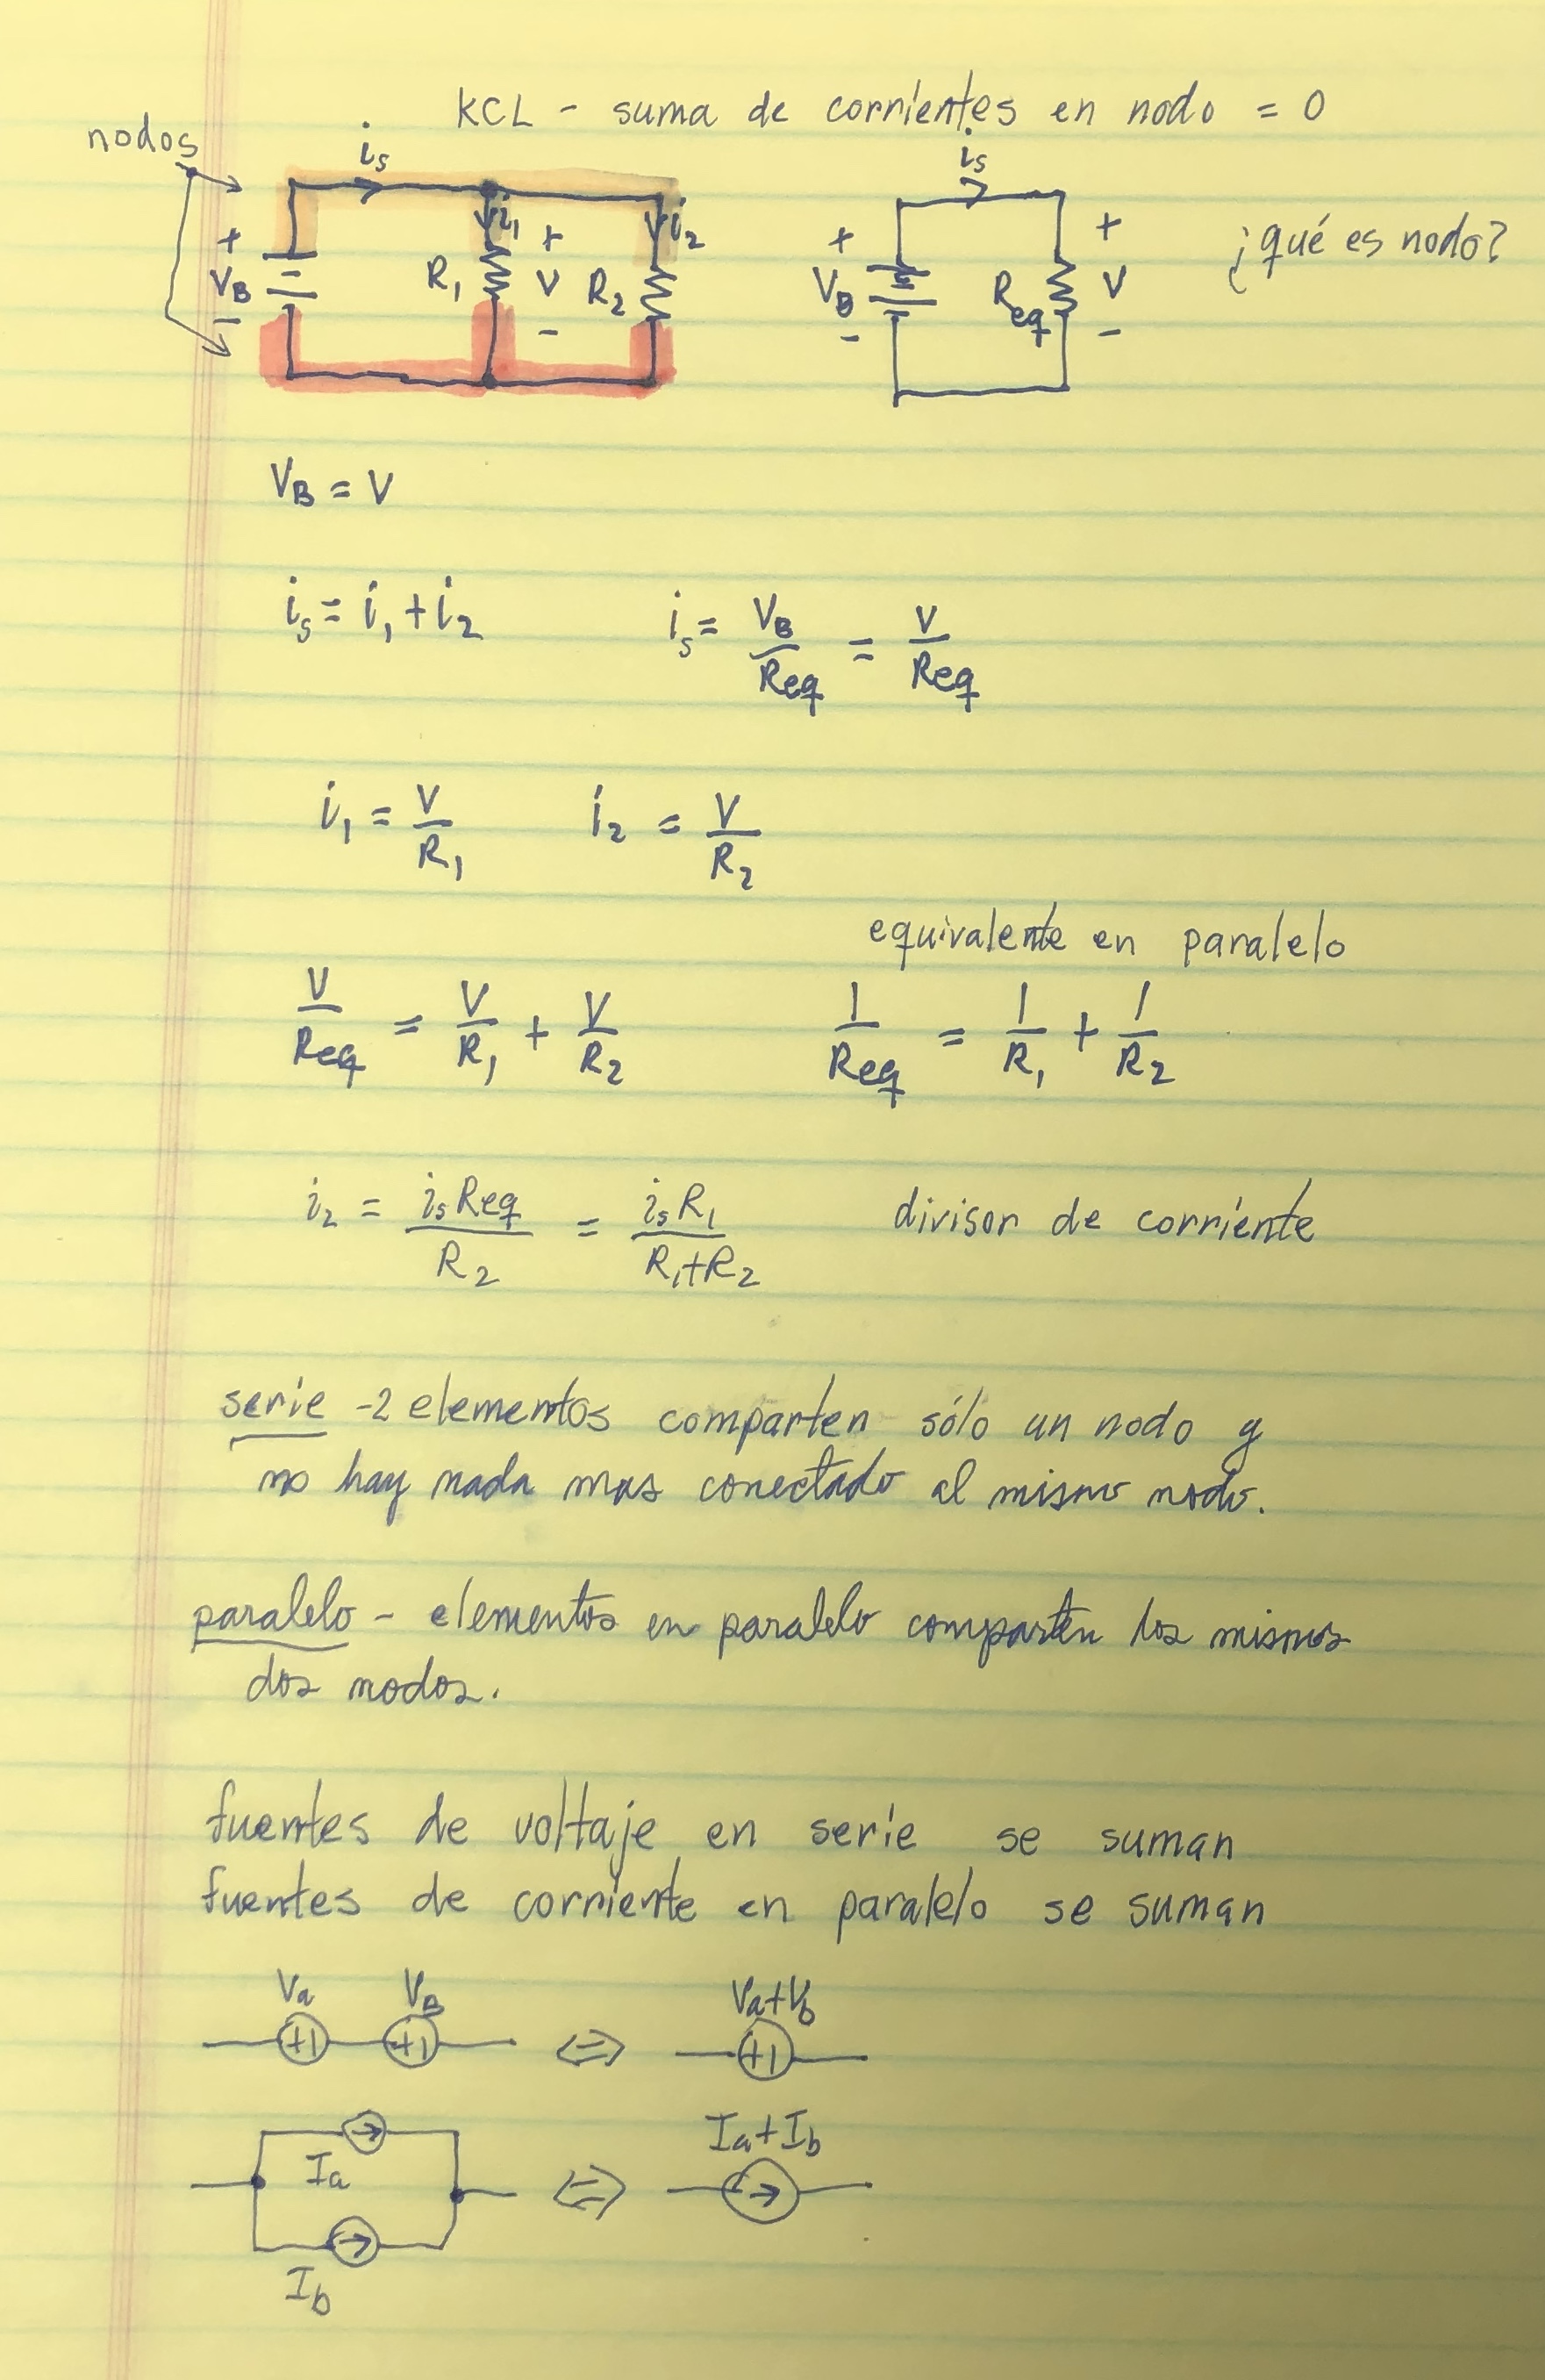 KCL - suma de corrientes en nodo = 0
nodos
is
i1
i2
+
VB
-
R1
+
V
-
R2
is
+
VB
-
Req
+
V
-
¿qué es nodo?
VB = V
is = i1 + i2
is = VB/Req = V/Req
i1 = V/R1
i2 = V/R2
equivalente en paralelo
V/Req = V/R1 + V/R2
1/Req = 1/R1 + 1/R2
i2 = is Req/R2 = is R1/R1+R2
divisor de corriente
serie - 2 elementos comparten sólo un nodo y
no hay nada mas conectado al mismo nodo.
paralelo - elementos en paralelo comparten los mismos
dos nodos.
fuentes de voltaje en serie se suman
fuentes de corriente en paralelo se suman
Va
VB
Va+Vb
Ia
Ib
Ia+Ib